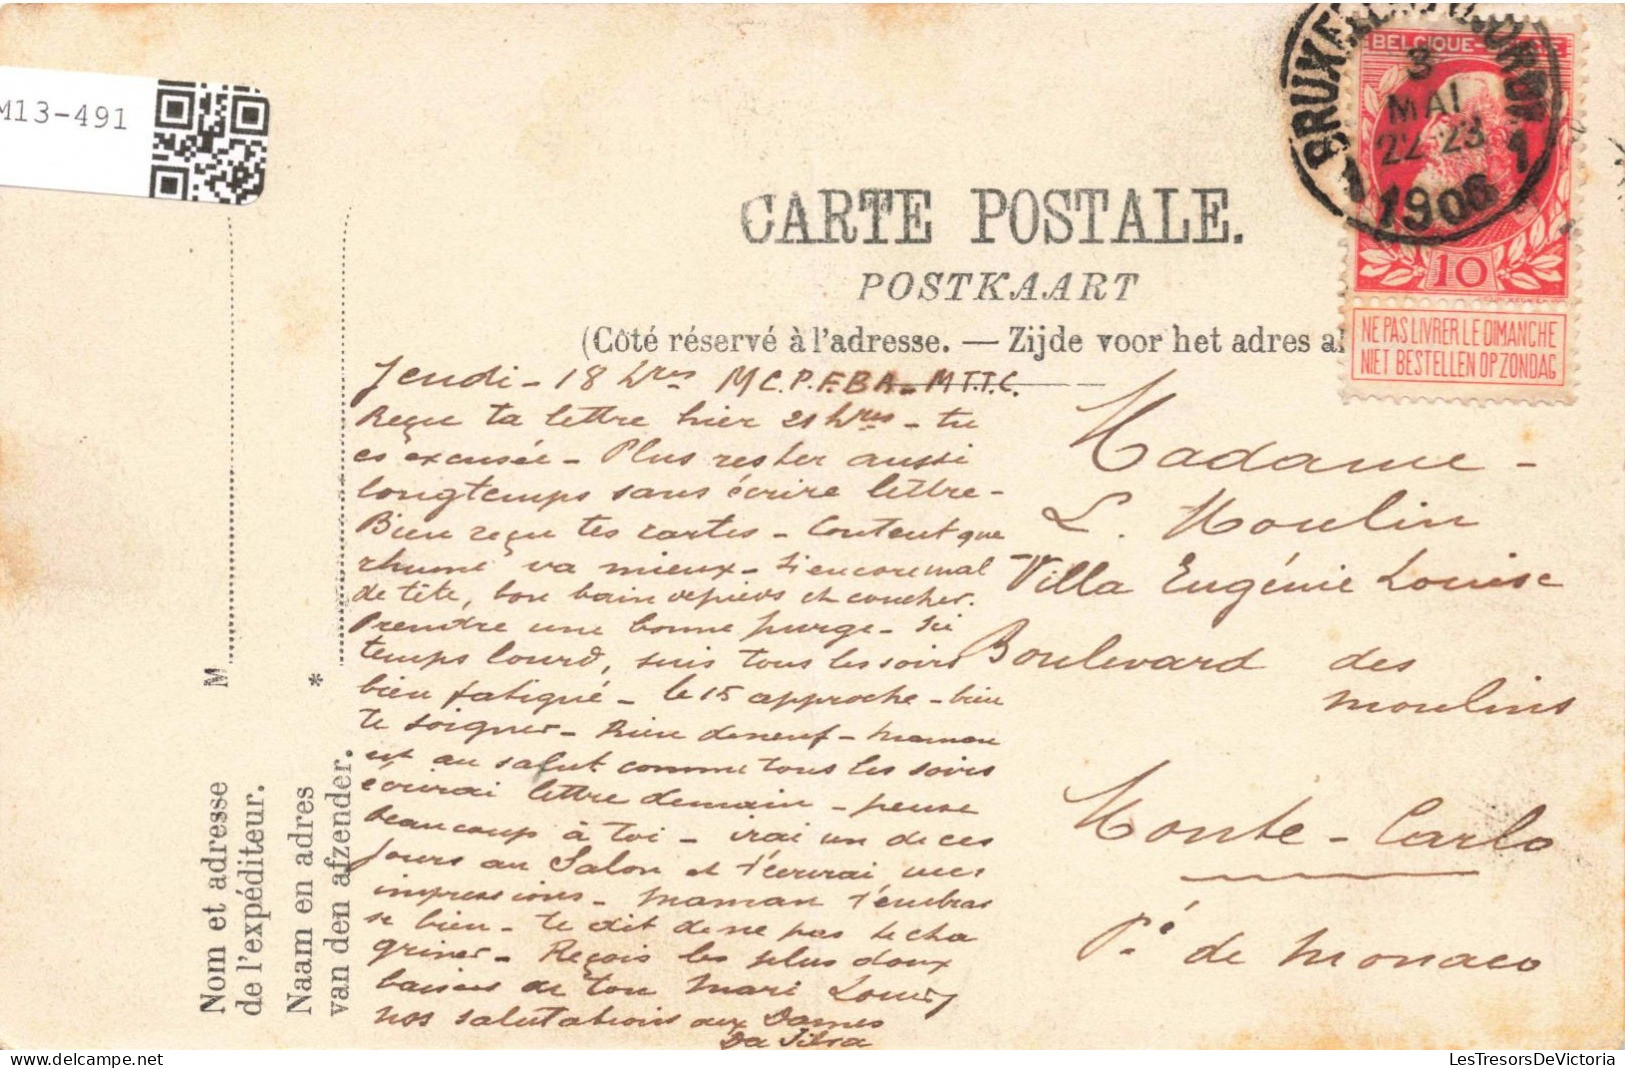 M13-491
BELGIQUE
3
MAI
22-23
1 1906 1
10
NE PAS LIVRER LE DIMANCHE
NIET BESTELLEN OP ZONDAG
CARTE POSTALE.
POSTKAART
(Côté réservé à l'adresse. — Zijde voor het adres al
Jeudi - 18 hres M C.P.F.B A - M T.T.C.
Reçu ta lettre hier 21 hres - tu
es excusée - Plus rester aussi
longtemps sans écrire lettre -
Bien reçu tes cartes - Content que
rhume va mieux - si encore mal
de tête, bon bain de pieds et coucher.
Prendre une bonne purge - Ici
temps lourd, suis tous les soirs
bien fatigué - le 15 approche - bien
te soigner - Rien de neuf - Maman
est au salut comme tous les soirs
écrirai lettre demain - pense
beaucoup à toi - irai un de ces
jours au Salon et t'écrirai mes
impressions - Maman t'embras
se bien - te dit de ne pas te cha
griner - Reçois les plus doux
baisers de ton Mari Louis
nos salutations aux Dames
Da Silva
Madame -
L. Moulin
Villa Eugénie Louise
Boulevard des
moulins
Monte - Carlo
Pté de Monaco
M
*
Nom et adresse
de l'expéditeur.
Naam en adres
van den afzender.
LesTresorsDeVictoria